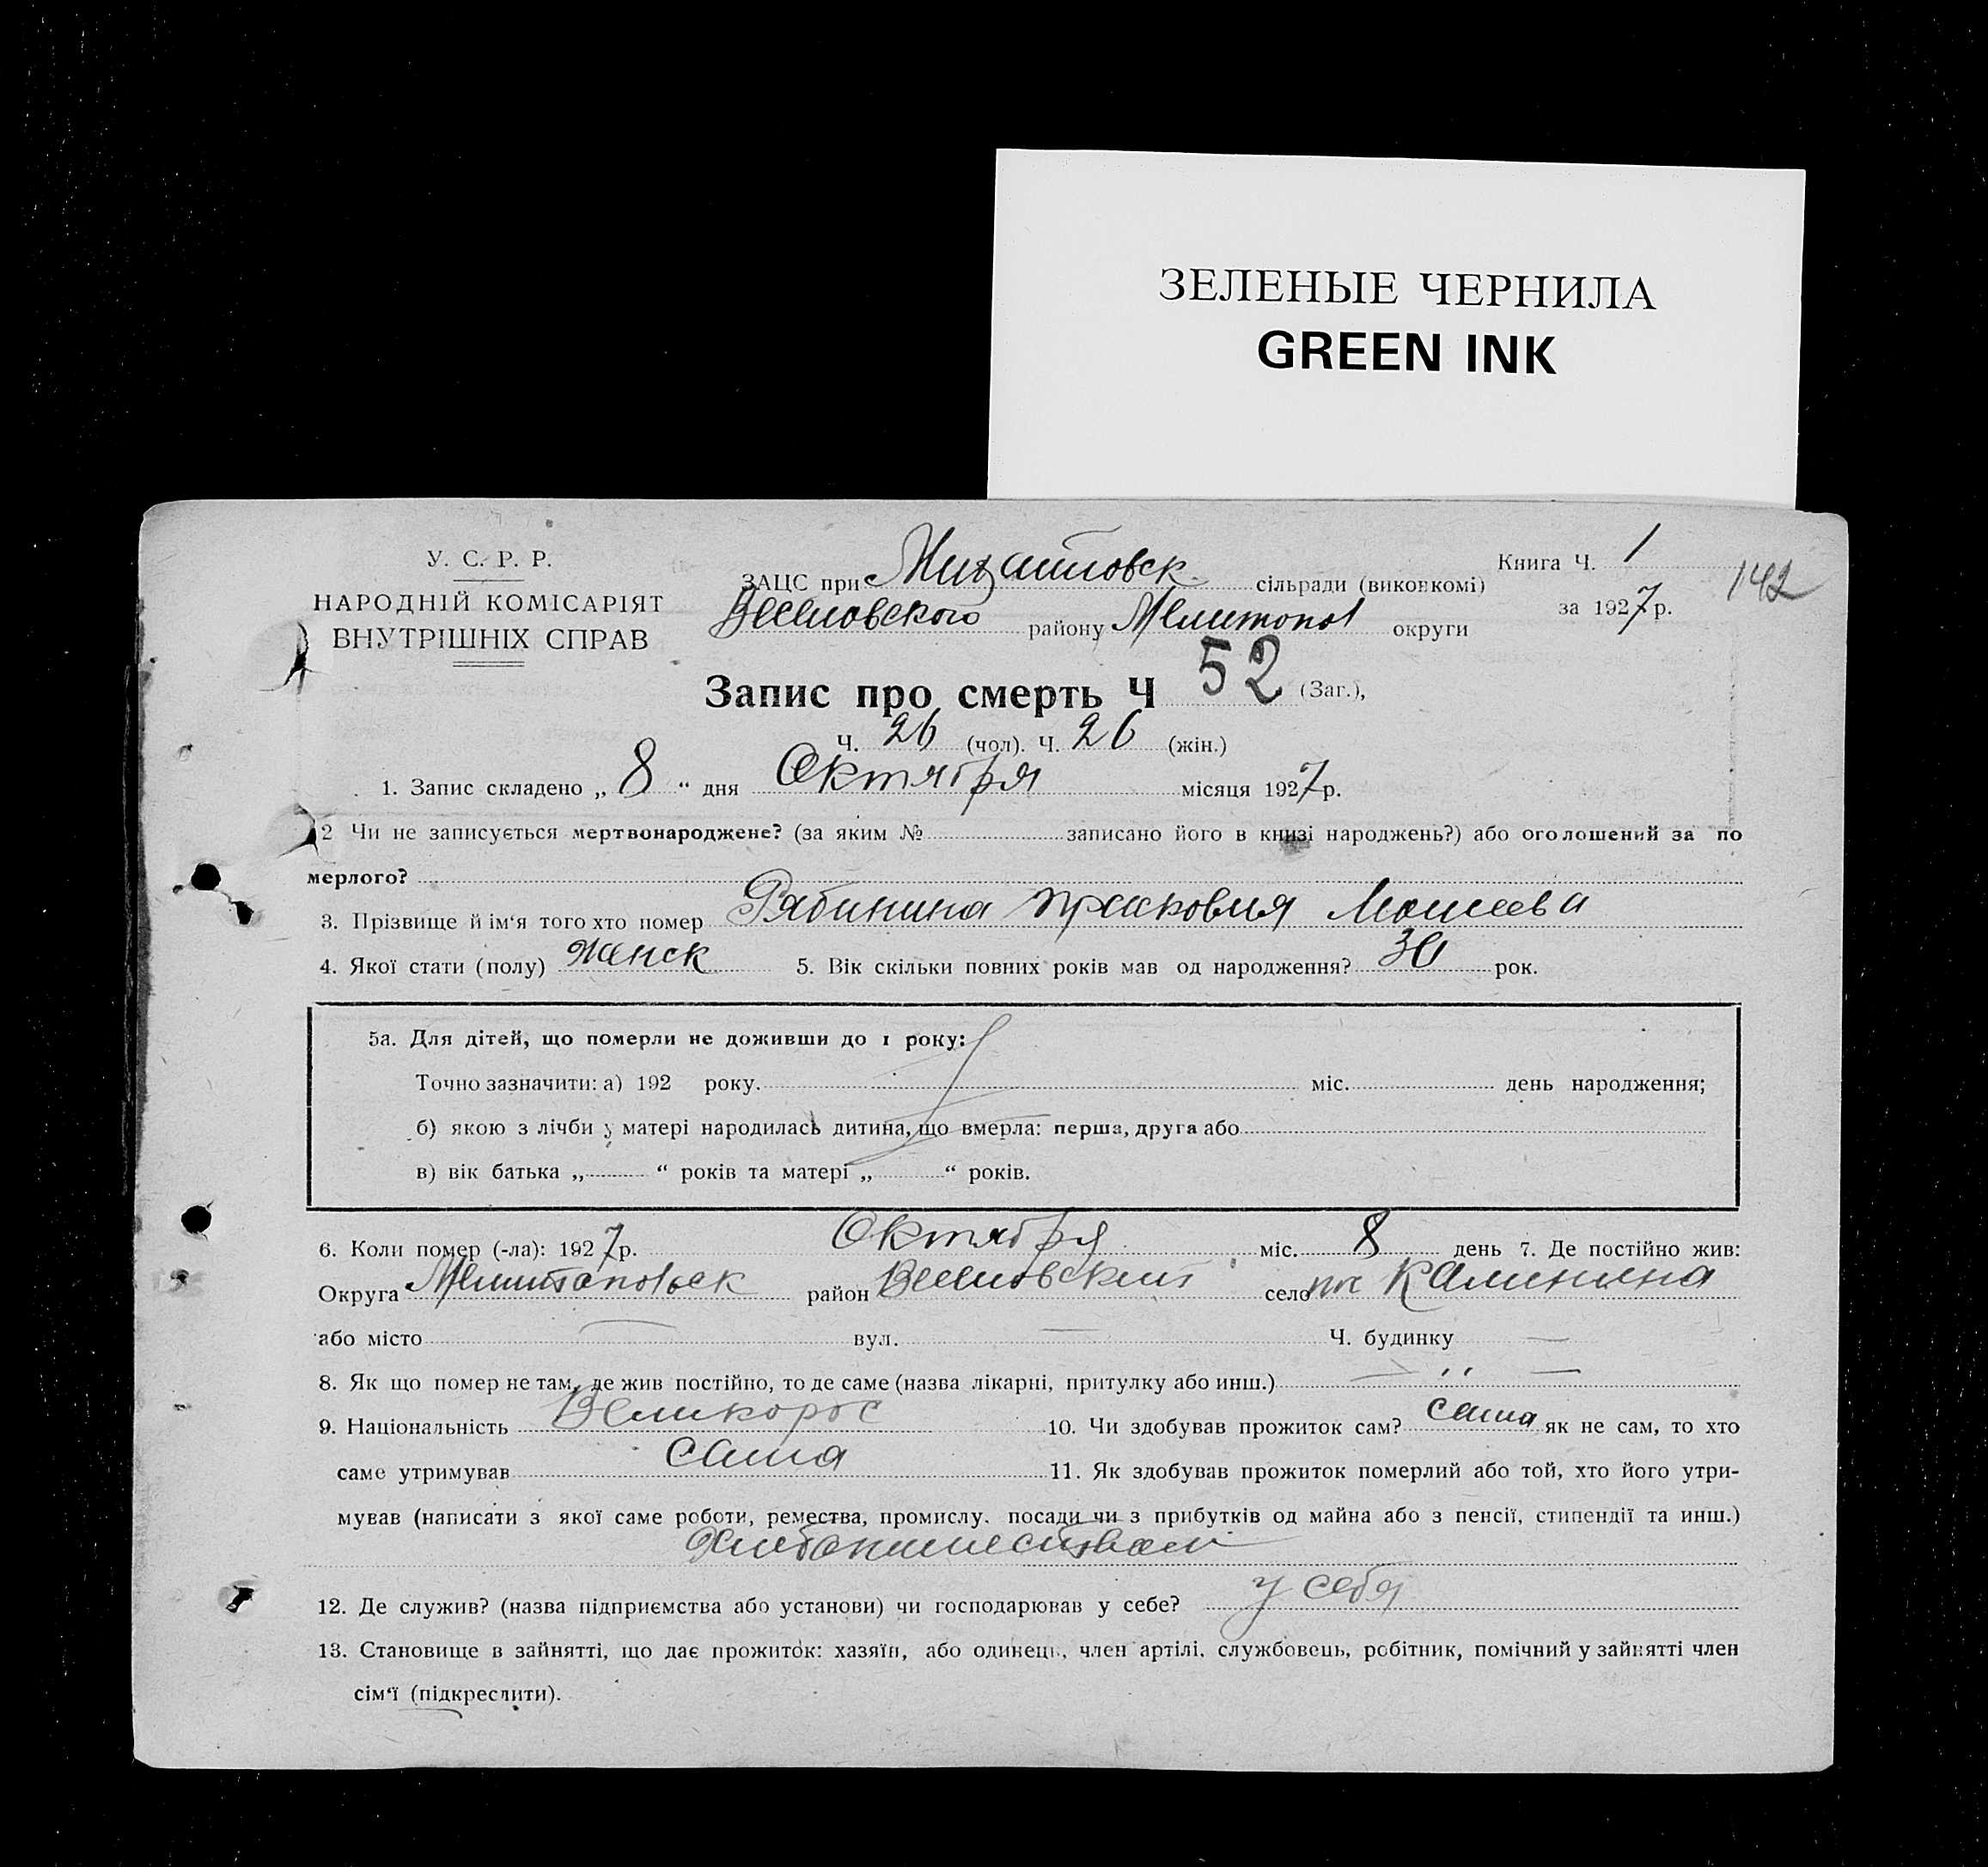 ЗЕЛЕНЫЕ ЧЕРНИЛА
GREEN INK
У. С. Р. Р.
НАРОДНІЙ КОМІСАРІЯТ
ВНУТРІШНІХ СПРАВ
ЗАЦС при Михайловск. сільради (виконкомі)
Книга Ч. 1
142
Веселовского району Мелитопол округи
за 1927 р.
Запис про смерть Ч 52 (Заг.),
Ч. 26 (чол). Ч. 26 (жін.)
1. Запис складено „ 8 “ дня Октября місяця 1927 р.
2 Чи не записується мертвонароджене? (за яким № записано його в книзі народжень?) або оголошений за по
мерлого?
3. Прізвище й ім‘я того хто помер Рябинина Прасковия Моисеева
4. Якої стати (полу) Женск 5. Вік скільки повних років мав од народження? 30 рок.
5а. Для дітей, що померли не доживши до 1 року:
Точно зазначити: а) 192 року. міс. день народження;
б) якою з лічби у матері народилась дитина, що вмерла: перша, друга або
в) вік батька „ “ років та матері „ “ років.
6. Коли помер (-ла): 1927 р. Октября міс. 8 день 7. Де постійно жив:
Округа Мелитопольск район Веселовский село пос Калинина
або місто — вул. — Ч. будинку —
8. Як що помер не там, де жив постійно, то де саме (назва лікарні, притулку або инш.) — ,, —
9. Національність Великорос 10. Чи здобував прожиток сам? сама як не сам, то хто
саме утримував сама 11. Як здобував прожиток померлий або той, хто його утри-
мував (написати з якої саме роботи, ремества, промислу, посади чи з прибутків од майна або з пенсії, стипендії та инш.)
Хлебопашеством
12. Де служив? (назва підприємства або установи) чи господарював у себе? у себя
13. Становище в зайнятті, що дає прожиток: хазяїн, або одинець, член артілі, службовець, робітник, помічний у зайнятті член
сім‘ї (підкреслити).